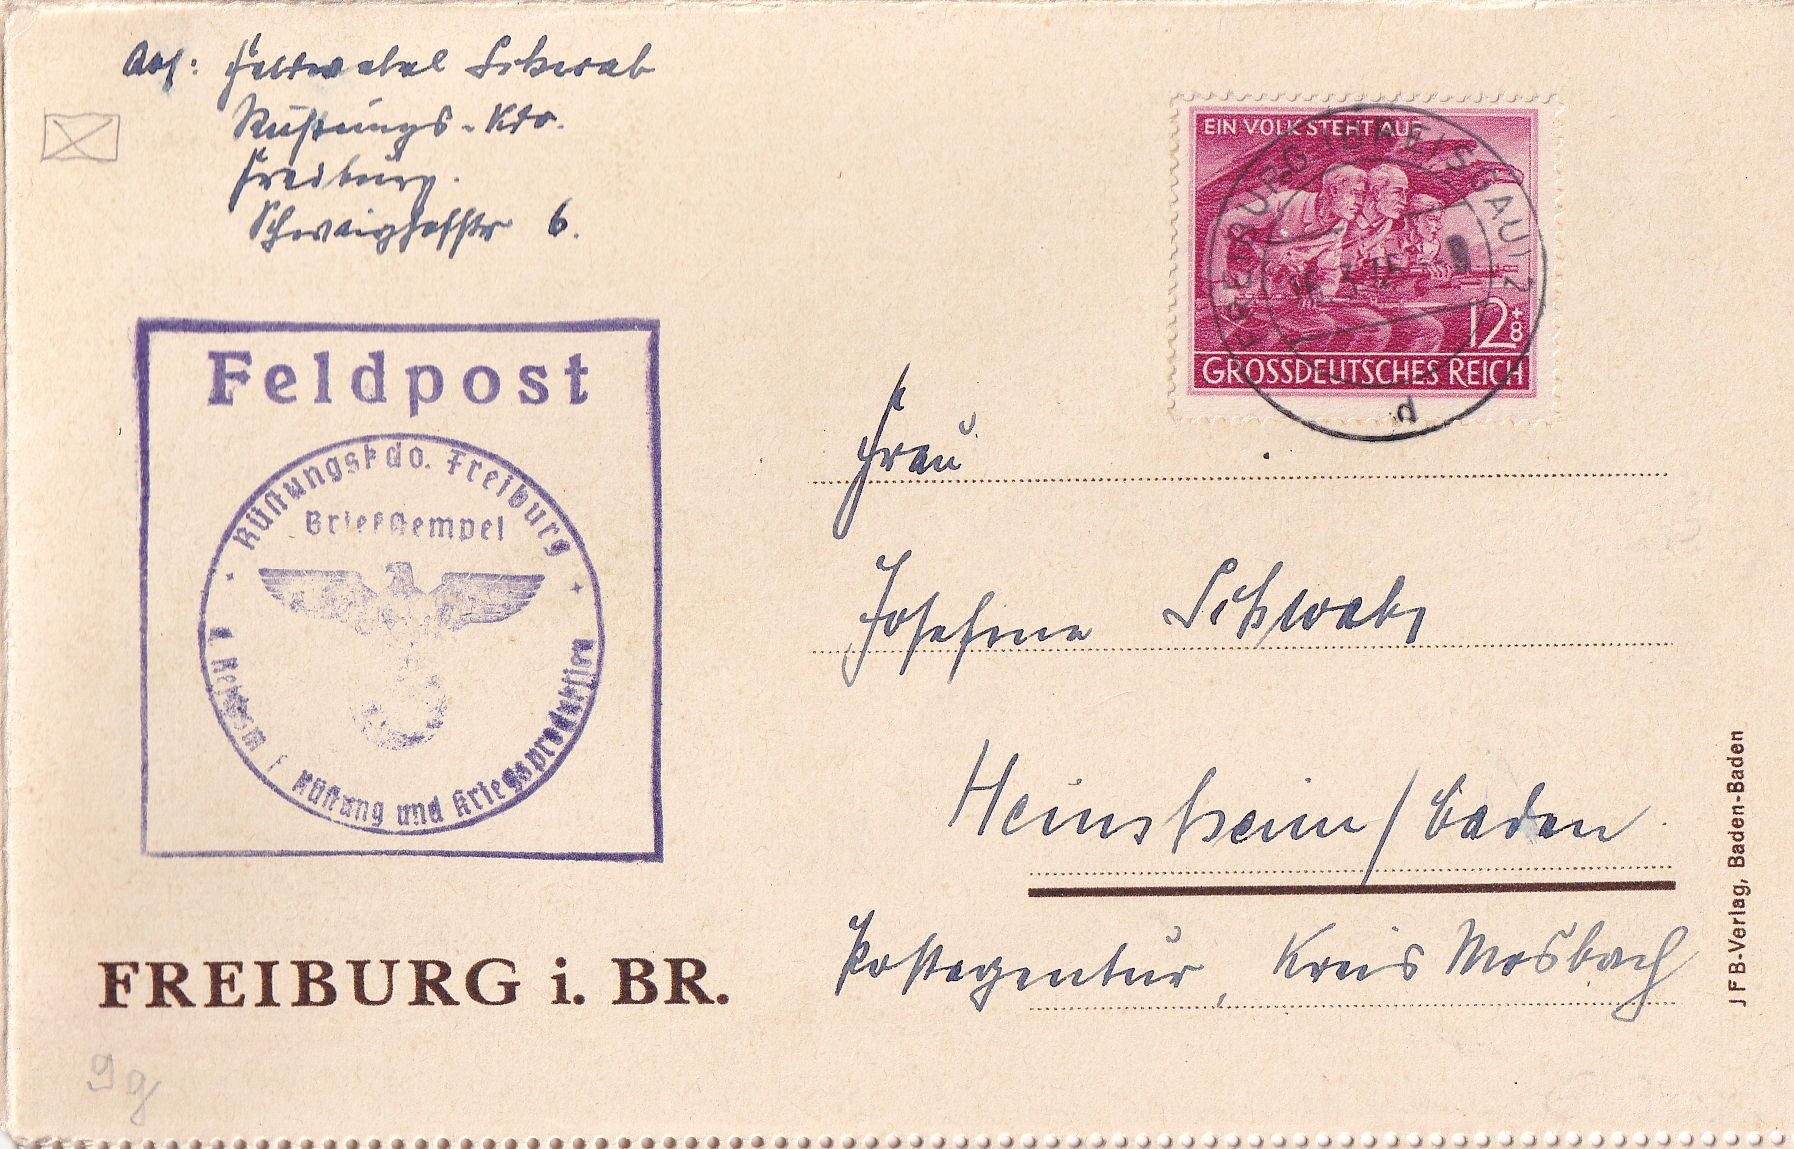 Abs: Feldwebel Schwab
Rüstungs-Kdo.
Freiburg.
Schwaighofstr 6.
EIN VOLK STEHT AUF
12+8
GROSSDEUTSCHES REICH
FREIBURG (BREISGAU) 2
d
Feldpost
Rüstungskdo. Freiburg
Briefstempel
d. Reichsm. f. Rüstung und Kriegsproduktion
Frau
Josefine Schwab
Heinsheim/Baden
Postagentur, Kreis Mosbach
FREIBURG i. BR.
JFB-Verlag, Baden-Baden